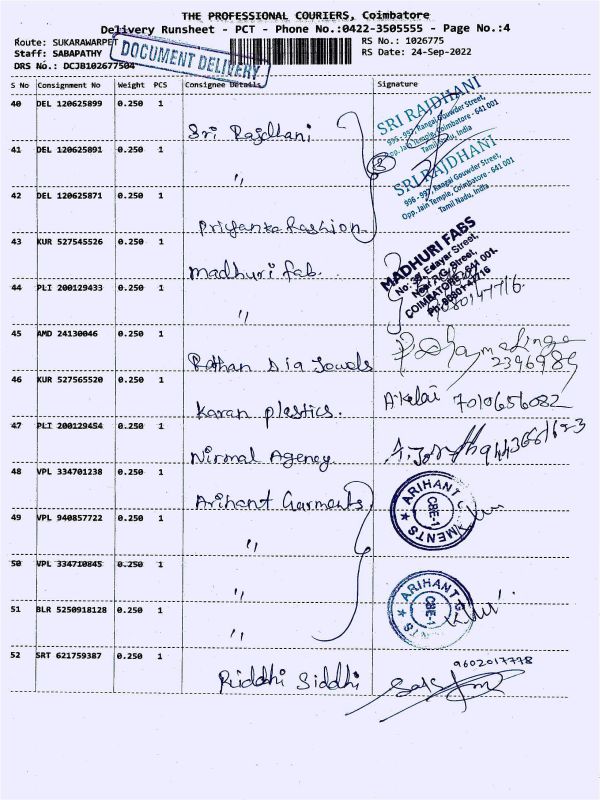 THE PROFESSIONAL COURIERS, Coimbatore
Delivery Runsheet - PCT - Phone No.:0422-3505555 - Page No.:4
Route: SUKARAWARPET
RS No.: 1026775
Staff: SABAPATHY
RS Date: 24-Sep-2022
DRS No.: DCJB102677504
DOCUMENT DELIVERY
S No Consignment No Weight PCS Consignee Details Signature
40 DEL 120625899 0.250 1 Sri Rajdhani
SRI RAJDHANI
995 - 997, Rangai Gouwder Street,
Opp. Jain Temple, Coimbatore - 641 001
Tamil Nadu, India
41 DEL 120625891 0.250 1 "
SRI RAJDHANI
996 - 997, Rangai Gouwder Street,
Opp. Jain Temple, Coimbatore - 641 001
Tamil Nadu, India
42 DEL 120625871 0.250 1 Priyanka Fashion
43 KUR 527545526 0.250 1 Madhuri fab.
MADHURI FABS
Edayar Street,
COIMBATORE - 641 001.
44 PLI 200129433 0.250 1 "
45 AMD 24130046 0.250 1 Pathan Dia Jewels
46 KUR 527565520 0.250 1 Karan plastics. A.Kalai 7010656082
47 PLI 200129454 0.250 1 Nirmal Agency
48 VPL 334701238 0.250 1 Arihant Garments
ARIHANT GARMENTS
CBE-1
49 VPL 940857722 0.250 1 "
50 VPL 334710845 0.250 1 "
51 BLR 5250918128 0.250 1 "
ARIHANT
CBE-1
52 SRT 621759387 0.250 1 Riddhi Siddhi 9602017778